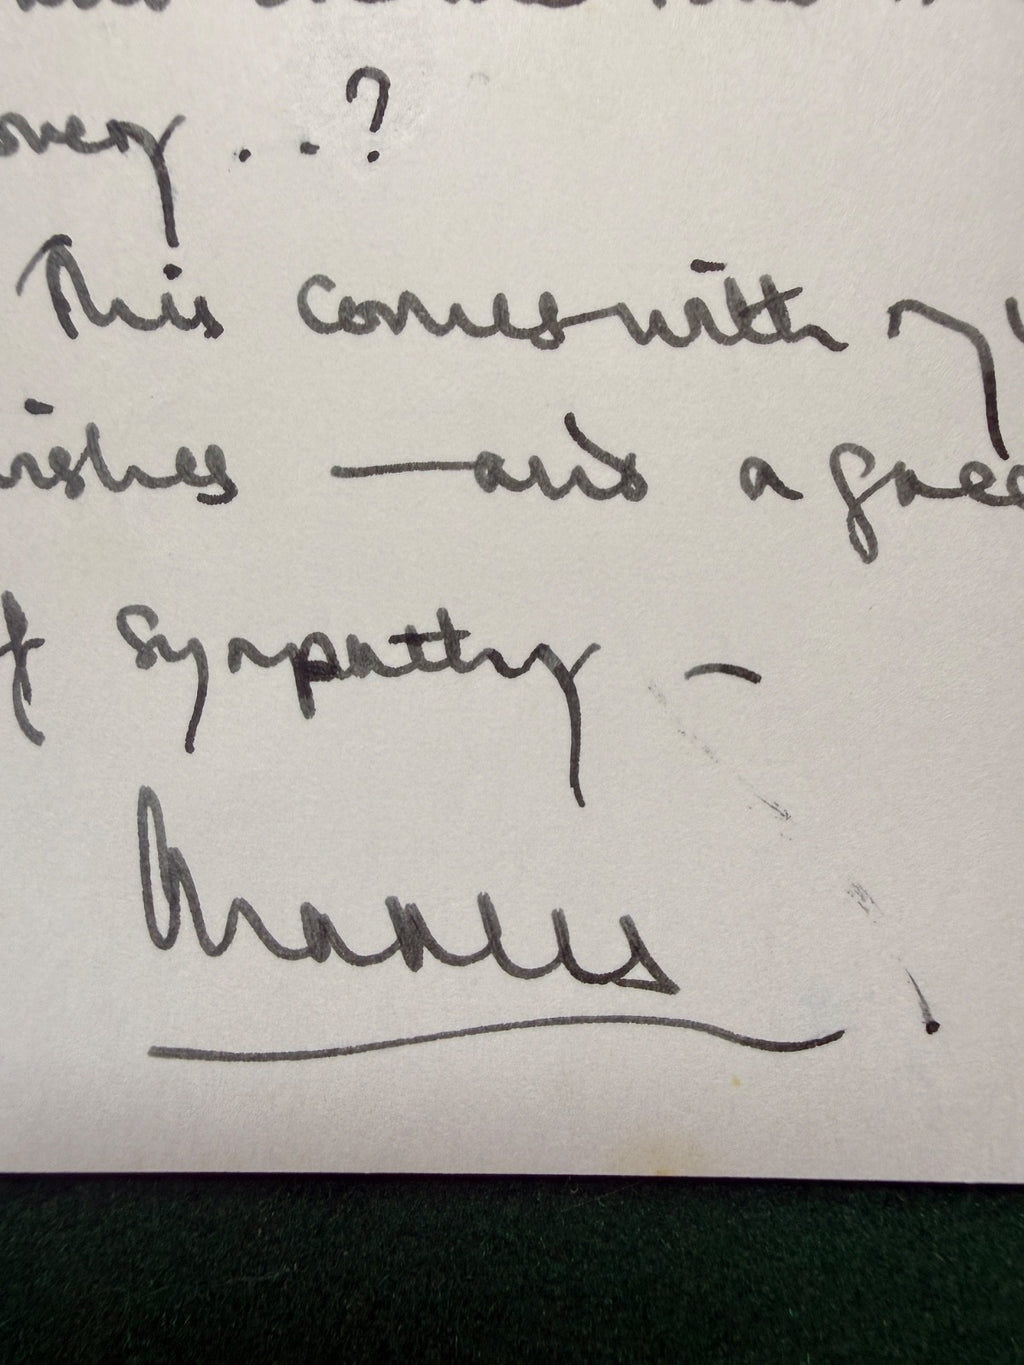 ...?
This comes with my
wishes — and a great
of sympathy —
Charles